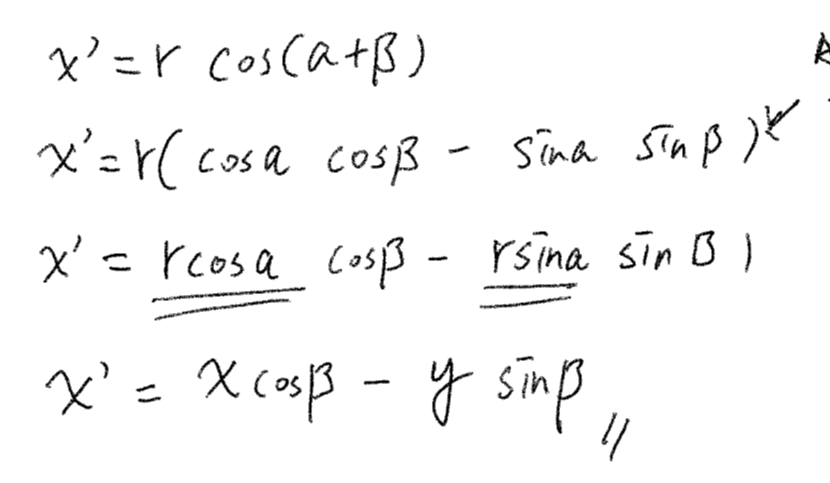 x' = r cos(a+β)
x' = r( cosa cosβ - sina sinβ )
x' = rcosa cosβ - rsina sinβ )
x' = x cosβ - y sinβ //